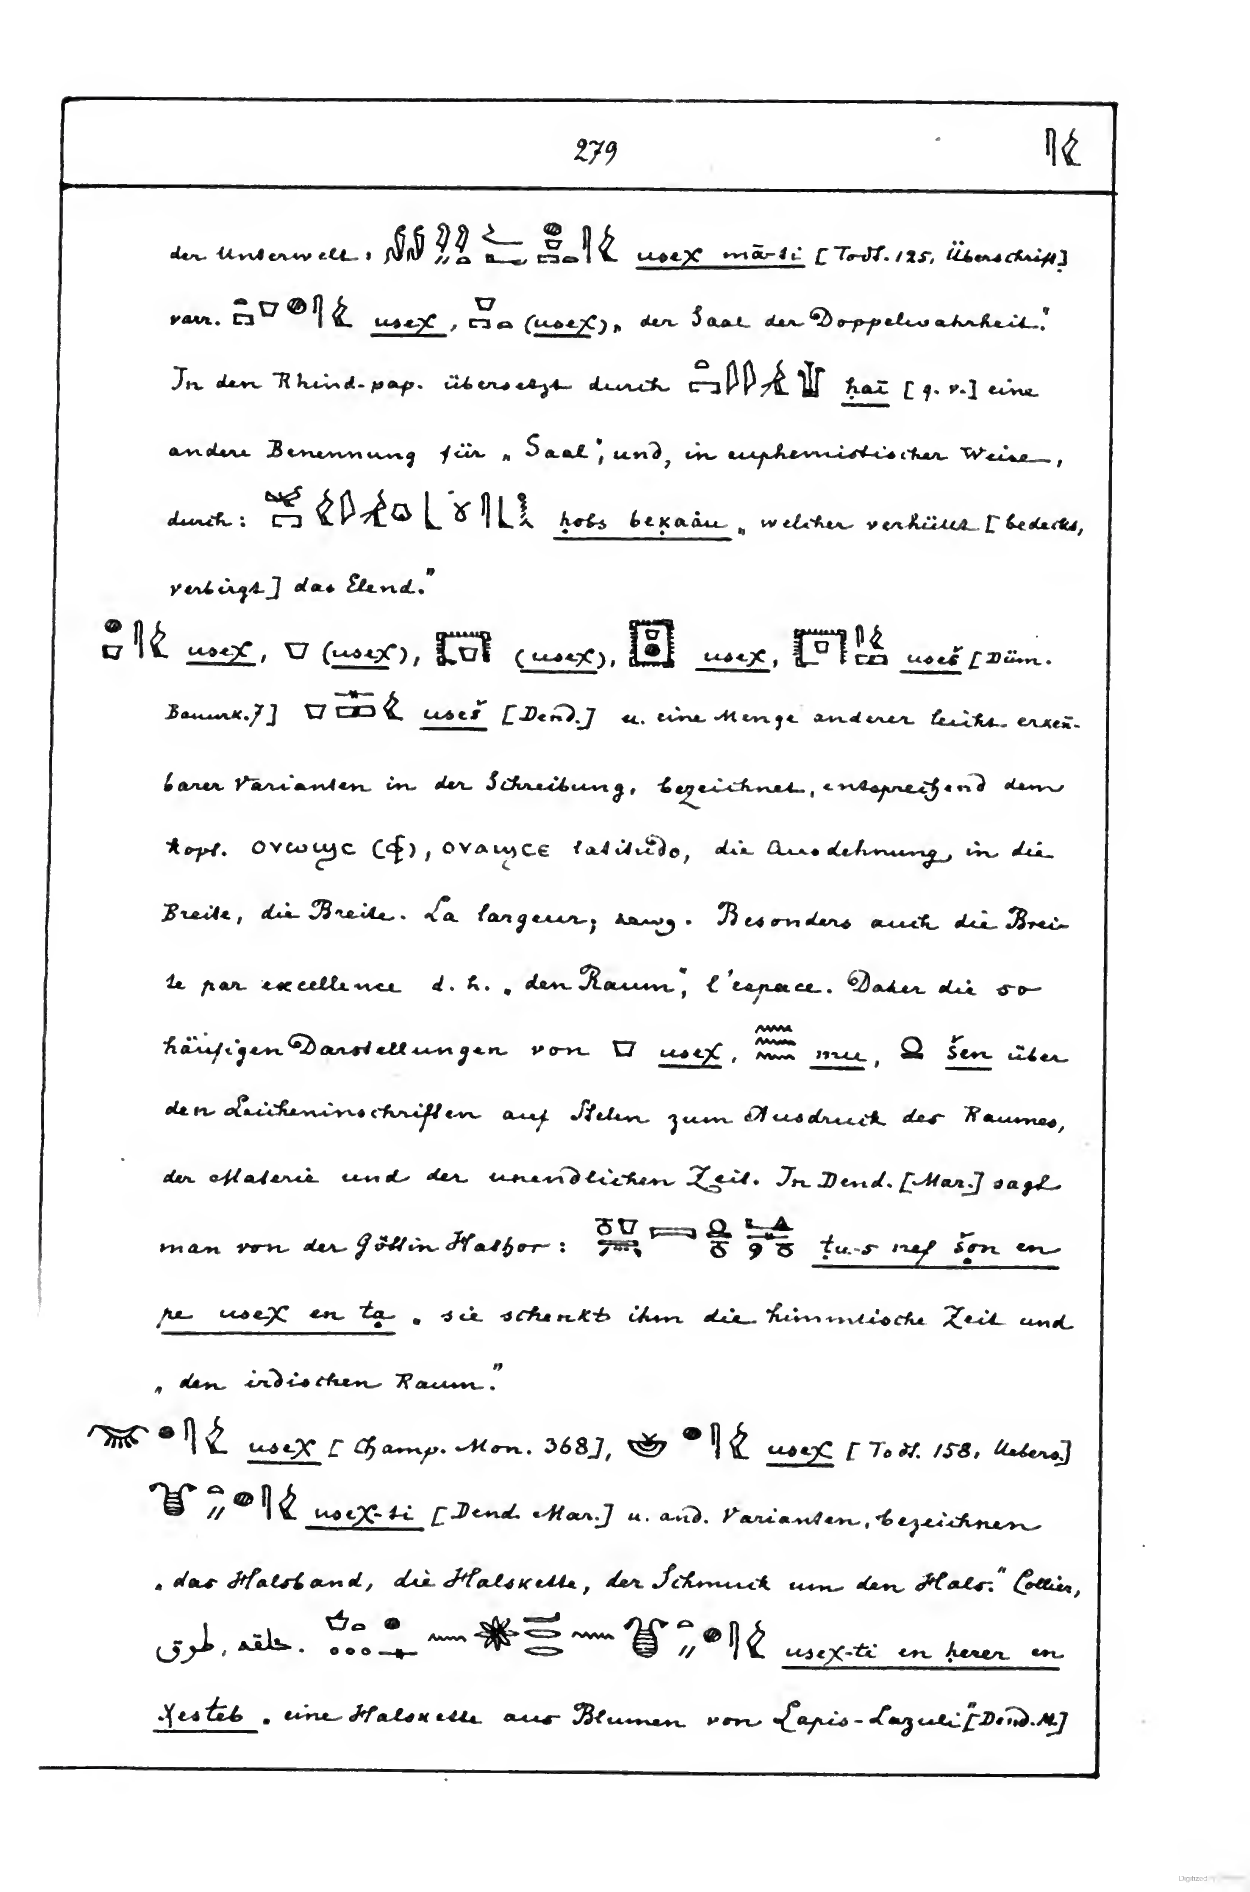 279
der Unterwelt, usex mā-ti [Todt. 125, Überschrift]
varr. usex, (usex), „der Saal der Doppelwahrheit."
In den Rhind-pap. übersetzt durch ḥaī [q. v.] eine
andere Benennung für „Saal", und, in euphemistischer Weise,
durch: ḥobs beḳaȧu „welcher verhüllt [bedeckt,
verbirgt] das Elend."
usex, (usex), (usex), usex, useš [Düm.
Bauurk. 7] useš [Dend.] u. eine Menge anderer leicht erkeñ-
barer Varianten in der Schreibung, bezeichnet, entsprechend dem
kopt. ογωϣc (ϕ), ογαϣcε latitudo, die Ausdehnung in die
Breite, die Breite. La largeur; . Besonders auch die Brei-
te par excellence d. h. „den Raum", l'espace. Daher die so
häufigen Darstellungen von usex, mu, šen über
den Leicheninschriften auf Stelen zum Ausdruck des Raumes,
der Materie und der unendlichen Zeit. In Dend. [Mar.] sagt
man von der Göttin Hathor: ṭu-s nef šọn en
pe usex en tạ „sie schenkt ihm die himmlische Zeit und
„den irdischen Raum."
usex [Champ. Mon. 368], usex [Todt. 158, Uebers.]
usex-ti [Dend. Mar.] u. and. Varianten, bezeichnen
„das Halsband, die Halskette, der Schmuck um den Hals." Collier,
طوق, حلقه. usex-ti en ḥerer en
xesteb „eine Halskette aus Blumen von Lapis-Lazuli" [Dend. M.]